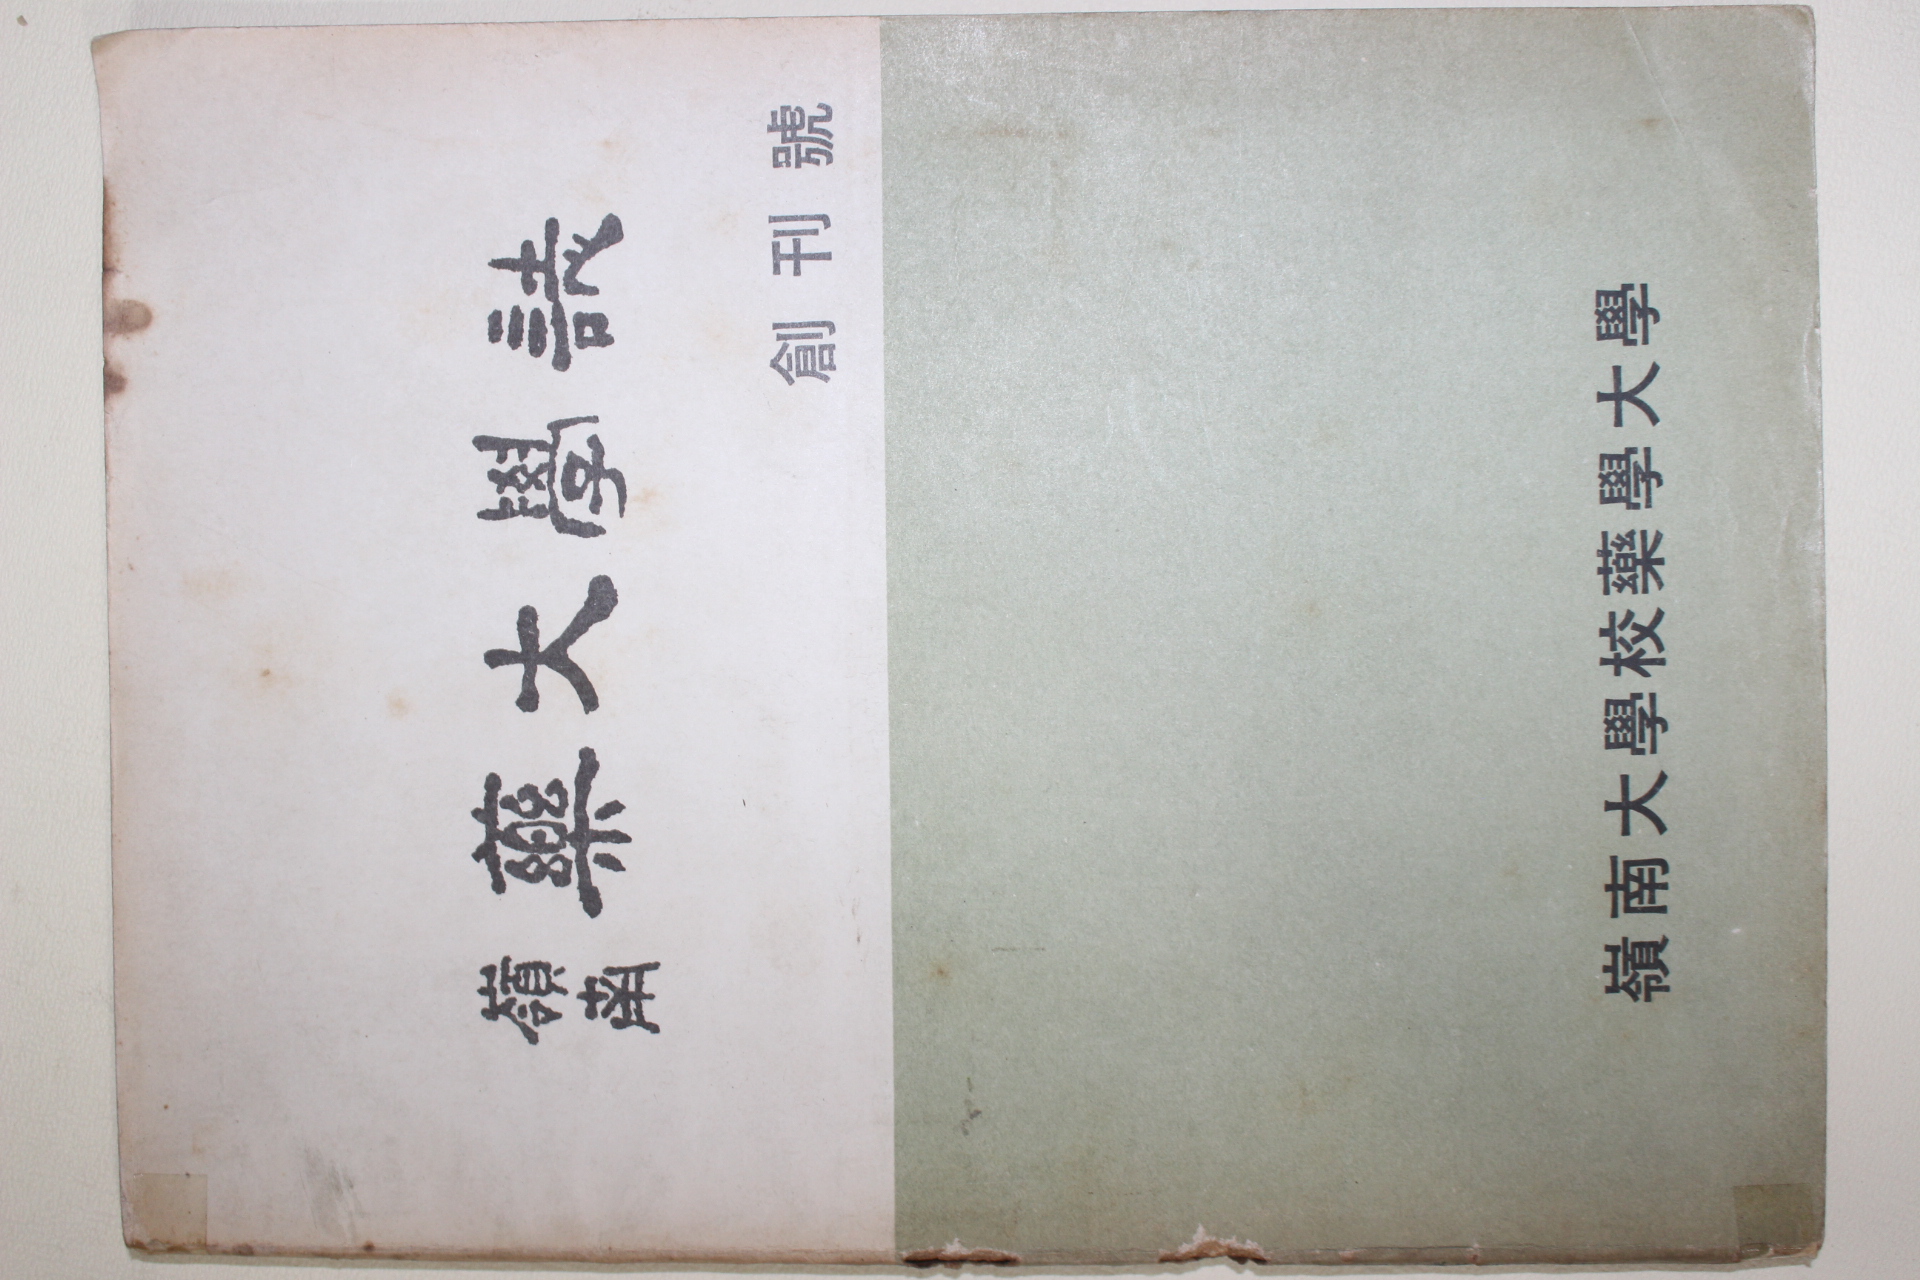 嶺南 藥大學誌
創刊號
嶺南大學校藥學大學